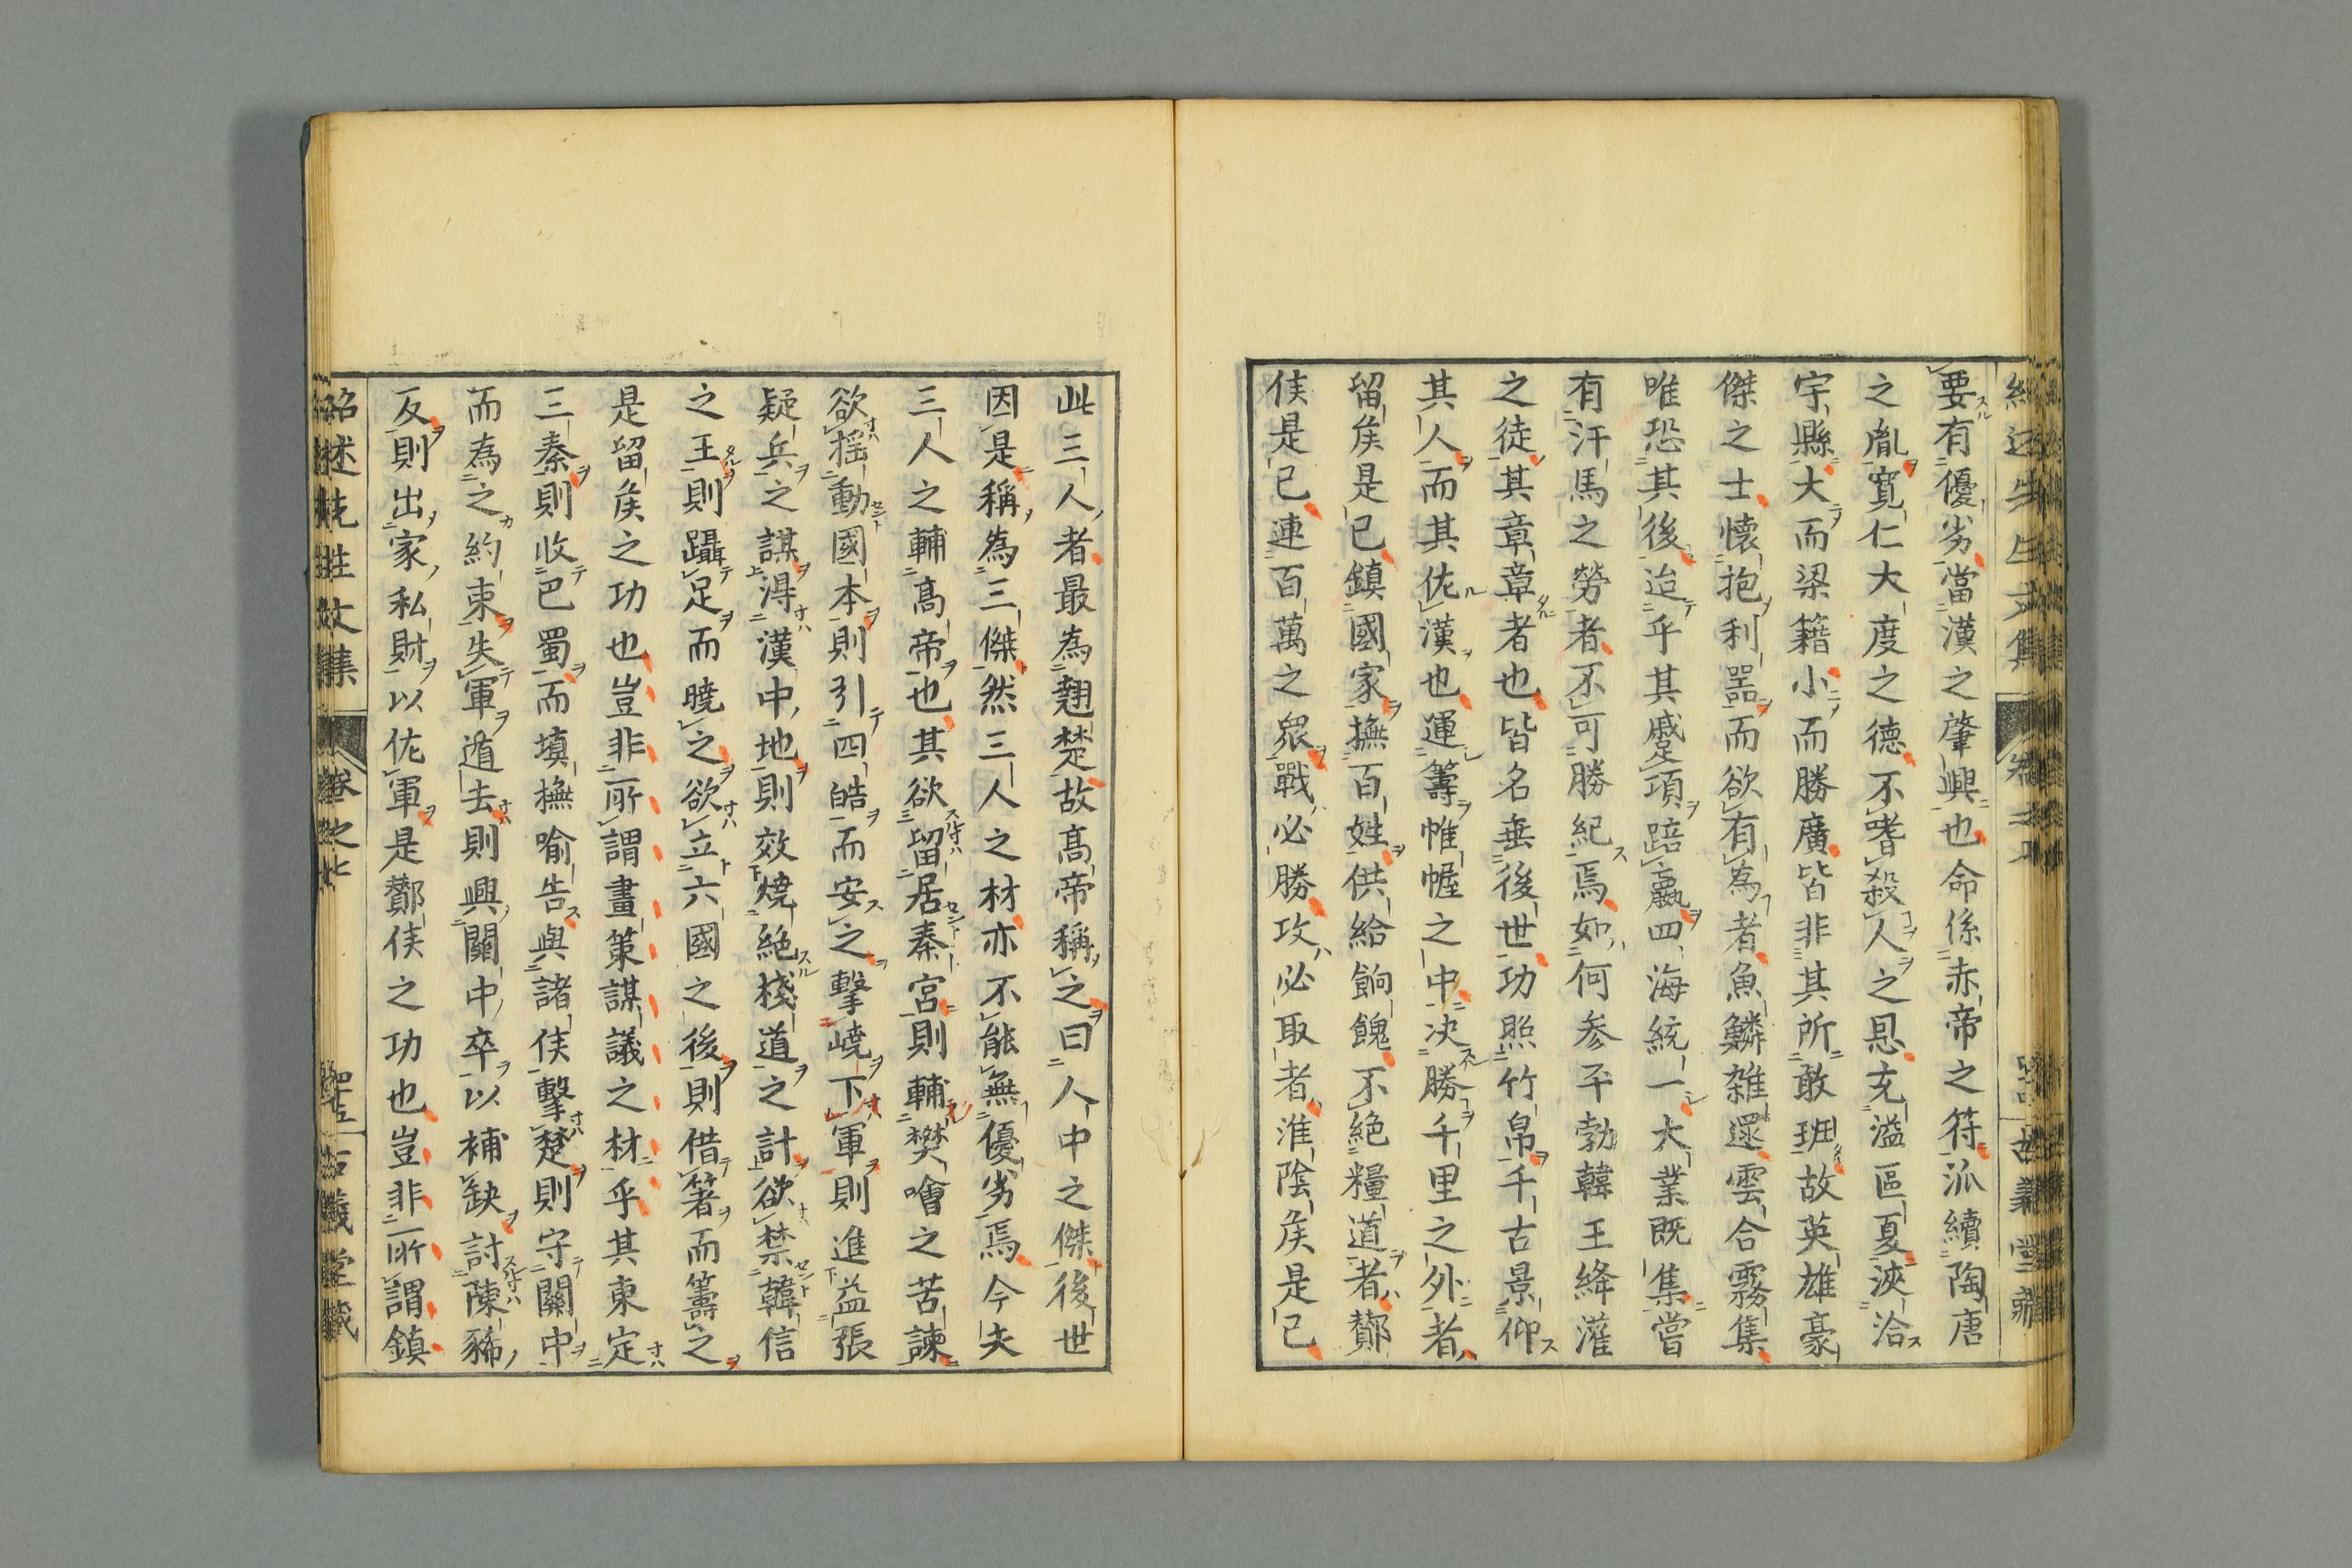 要有優劣當漢之肇興也命係赤帝之符泒續陶唐
之胤寬仁大度之德不嗜殺人之恩充溢區夏浹洽
宇縣大而梁籍小而勝廣皆非其所敢班故英雄豪
傑之士懷抱利噐而欲有為者魚鱗雑遝雲合霧集
唯恐其後迨乎其蹙項踣嬴四海統一大業既集嘗
有汗馬之勞者不可勝紀焉如何参平勃韓王絳灌
之徒其章章者也皆名垂後世功照竹帛千古景仰
其人而其佐漢也運籌帷幄之中决勝千里之外者
留矦是已鎮國家撫百姓供給餉餽不絶糧道者酇
侯是已連百萬之衆戰必勝攻必取者淮陰矦是已
此三人者最為翹楚故高帝稱之曰人中之傑後世
因是稱為三傑然三人之材亦不能無優劣焉今夫
三人之輔髙帝也其欲留居秦宮則輔樊噲之苦諫
欲揺動國本則引四皓而安之擊嶢下軍則進益張
疑兵之謀淂漢中地則效燒絶棧道之計欲禁韓信
之王則躡足而曉之欲立六國之後則借箸而籌之
是留矦之功也豈非所謂畫策謀議之材乎其東定
三秦則收巴蜀而填撫喻告與諸侯擊楚則守關中
而為之約束失軍遁去則興關中卒以補缺討陳豨
反則出家私財以佐軍是酇侯之功也豈非所謂鎮
紹述先生文集 卷之七 四十五 古義堂藏